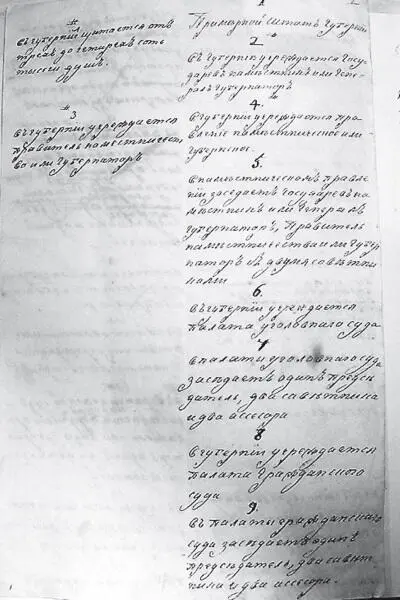 *
въ губернїи щитается отъ
трехъ до четырехъ сотъ
тысечь душъ.
* 3
въ губернїи учреждается
правитель наместничест
ва или губернаторъ
1
Примерной штатъ губернїи
2
въ губернїи учреждается Госу
даревъ наместникъ или Гене
ралъ губернаторъ
4.
въ губернїи учреждается пра
вленїе наместническое или
губернское.
5.
в наместническомъ правле
нїи заседаетъ Государевъ на
местникъ или Генералъ
губернаторъ, Правитель
наместничества или губер
наторъ с двумя советни
ками
6.
въ губернїи учреждается
палата уголовнаго суда
7
в палате уголовнаго суда
заседаетъ одинъ предсе
датель, два советника
и два ассесора
8
в губернїи учреждается
палата гражданскаго
суда
9.
въ палате гражданскаго
суда заседаетъ одинъ
председатель, два совет
ника и два ассесора.